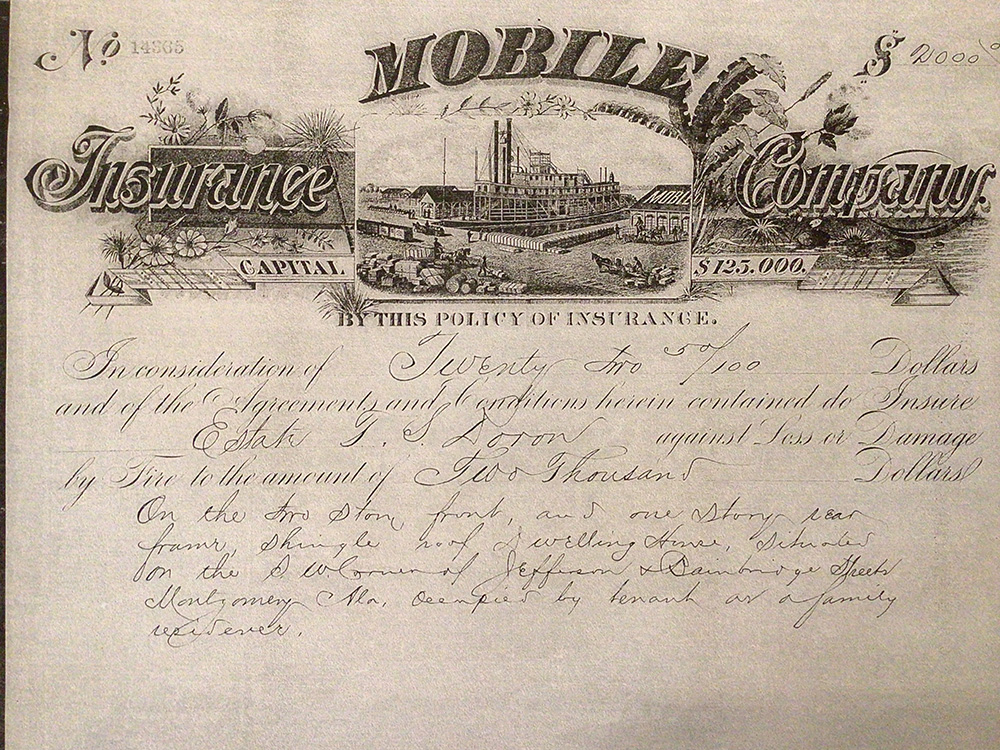 No 14365
$ 2000
MOBILE
Insurance Company.
MOBIL
CAPITAL $125.000.
BY THIS POLICY OF INSURANCE.
In consideration of Twenty two 50/100 Dollars
and of the Agreements and Conditions herein contained do Insure
Estate T. S. Doron against Loss or Damage
by Fire to the amount of Two Thousand Dollars
On the two Story front, and one Story rear
frame, shingle roof Dwelling House, situated
on the S W. Corner of Jefferson & Bainbridge Streets
Montgomery Ala, occupied by tenant as a family
residence.